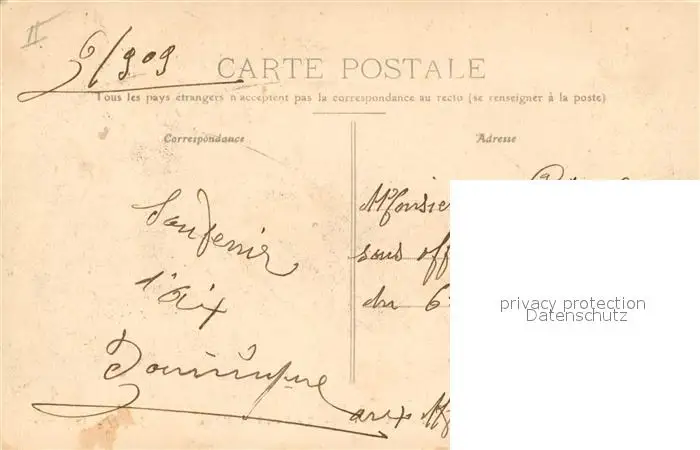 II
6/909
CARTE POSTALE
Tous les pays étrangers n'acceptent pas la correspondance au recto (se renseigner à la poste)
Correspondance
Souvenir
d'Aix
Dominique
Adresse
Monsie
sous off
du 6
aux
privacy protection
Datenschutz